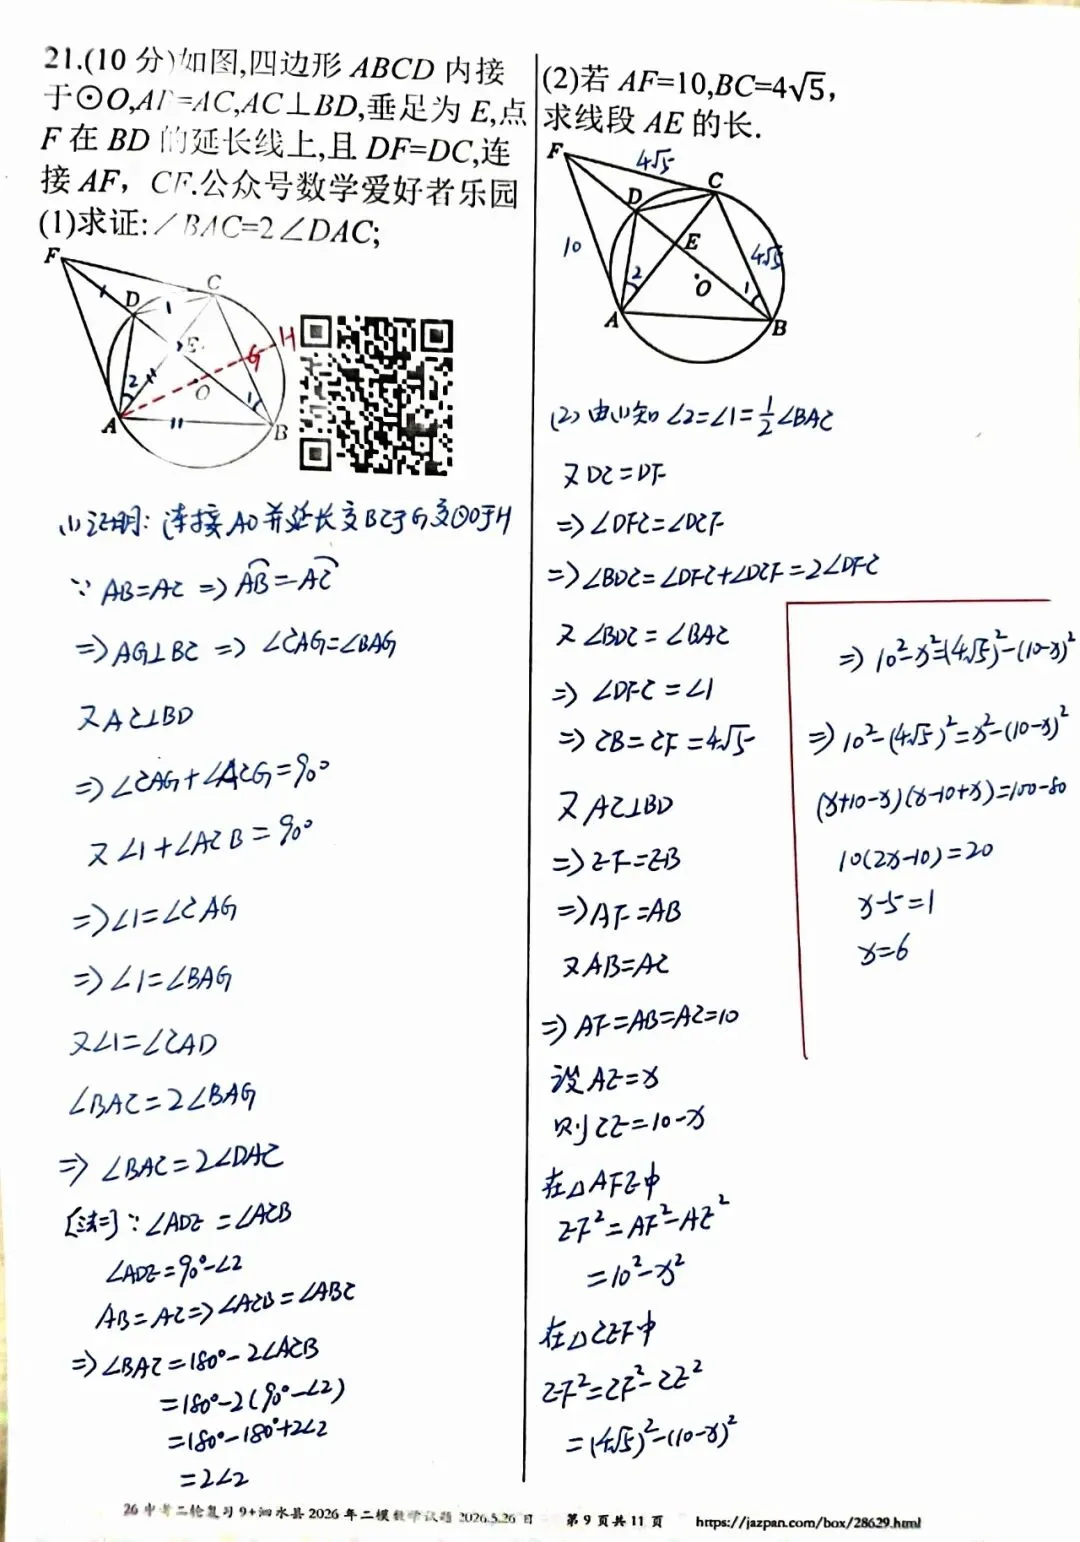 21.(10 分)如图,四边形 ABCD 内接
于⊙O,AB=AC,AC⊥BD,垂足为 E,点
F 在 BD 的延长线上,且 DF=DC,连
接 AF，CF.公众号数学爱好者乐园
(1)求证:∠BAC=2∠DAC;
F
D
1
C
E
H
G
2
O
1
A
B
(1)证明: 连接AO并延长交BC于G交⊙O于H
∵ AB=AC ⇒ AB=AC
⇒AG⊥BC ⇒ ∠CAG=∠BAG
又AC⊥BD
⇒∠CAG+∠ACG=90°
又∠1+∠ACB=90°
⇒∠1=∠CAG
⇒∠1=∠BAG
又∠1=∠CAD
∠BAC=2∠BAG
⇒ ∠BAC=2∠DAC
[法二] ∵∠ADE=∠ACB
∠ADE=90°-∠2
AB=AC⇒∠ACB=∠ABC
⇒∠BAC=180°-2∠ACB
=180°-2(90°-∠2)
=180°-180°+2∠2
=2∠2
(2)若 AF=10,BC=4√5,
求线段 AE 的长.
F
4√5
C
D
10
E
4√5
2
O
1
A
B
(2) 由(1)知 ∠2=∠1=1/2∠BAC
又DC=DF
⇒∠DFC=∠DCF
⇒∠BDC=∠DFC+∠DCF=2∠DFC
又∠BDC=∠BAC
⇒ ∠DFC=∠1
⇒ CB=CF=4√5
又AC⊥BD
⇒EF=EB
⇒AF=AB
又AB=AC
⇒AF=AB=AC=10
设AE=x
则CE=10-x
在△AFE中
EF²=AF²-AE²
=10²-x²
在△CEF中
EF²=CF²-CE²
=(4√5)²-(10-x)²
⇒10²-x²=(4√5)²-(10-x)²
⇒10²-(4√5)²=x²-(10-x)²
(x+10-x)(x-10+x)=100-80
10(2x-10)=20
x-5=1
x=6
26 中考二轮复习 9+泗水县 2026 年二模数学试题 2026.5.26 日 第 9 页共 11 页 https://jazpan.com/box/28629.html